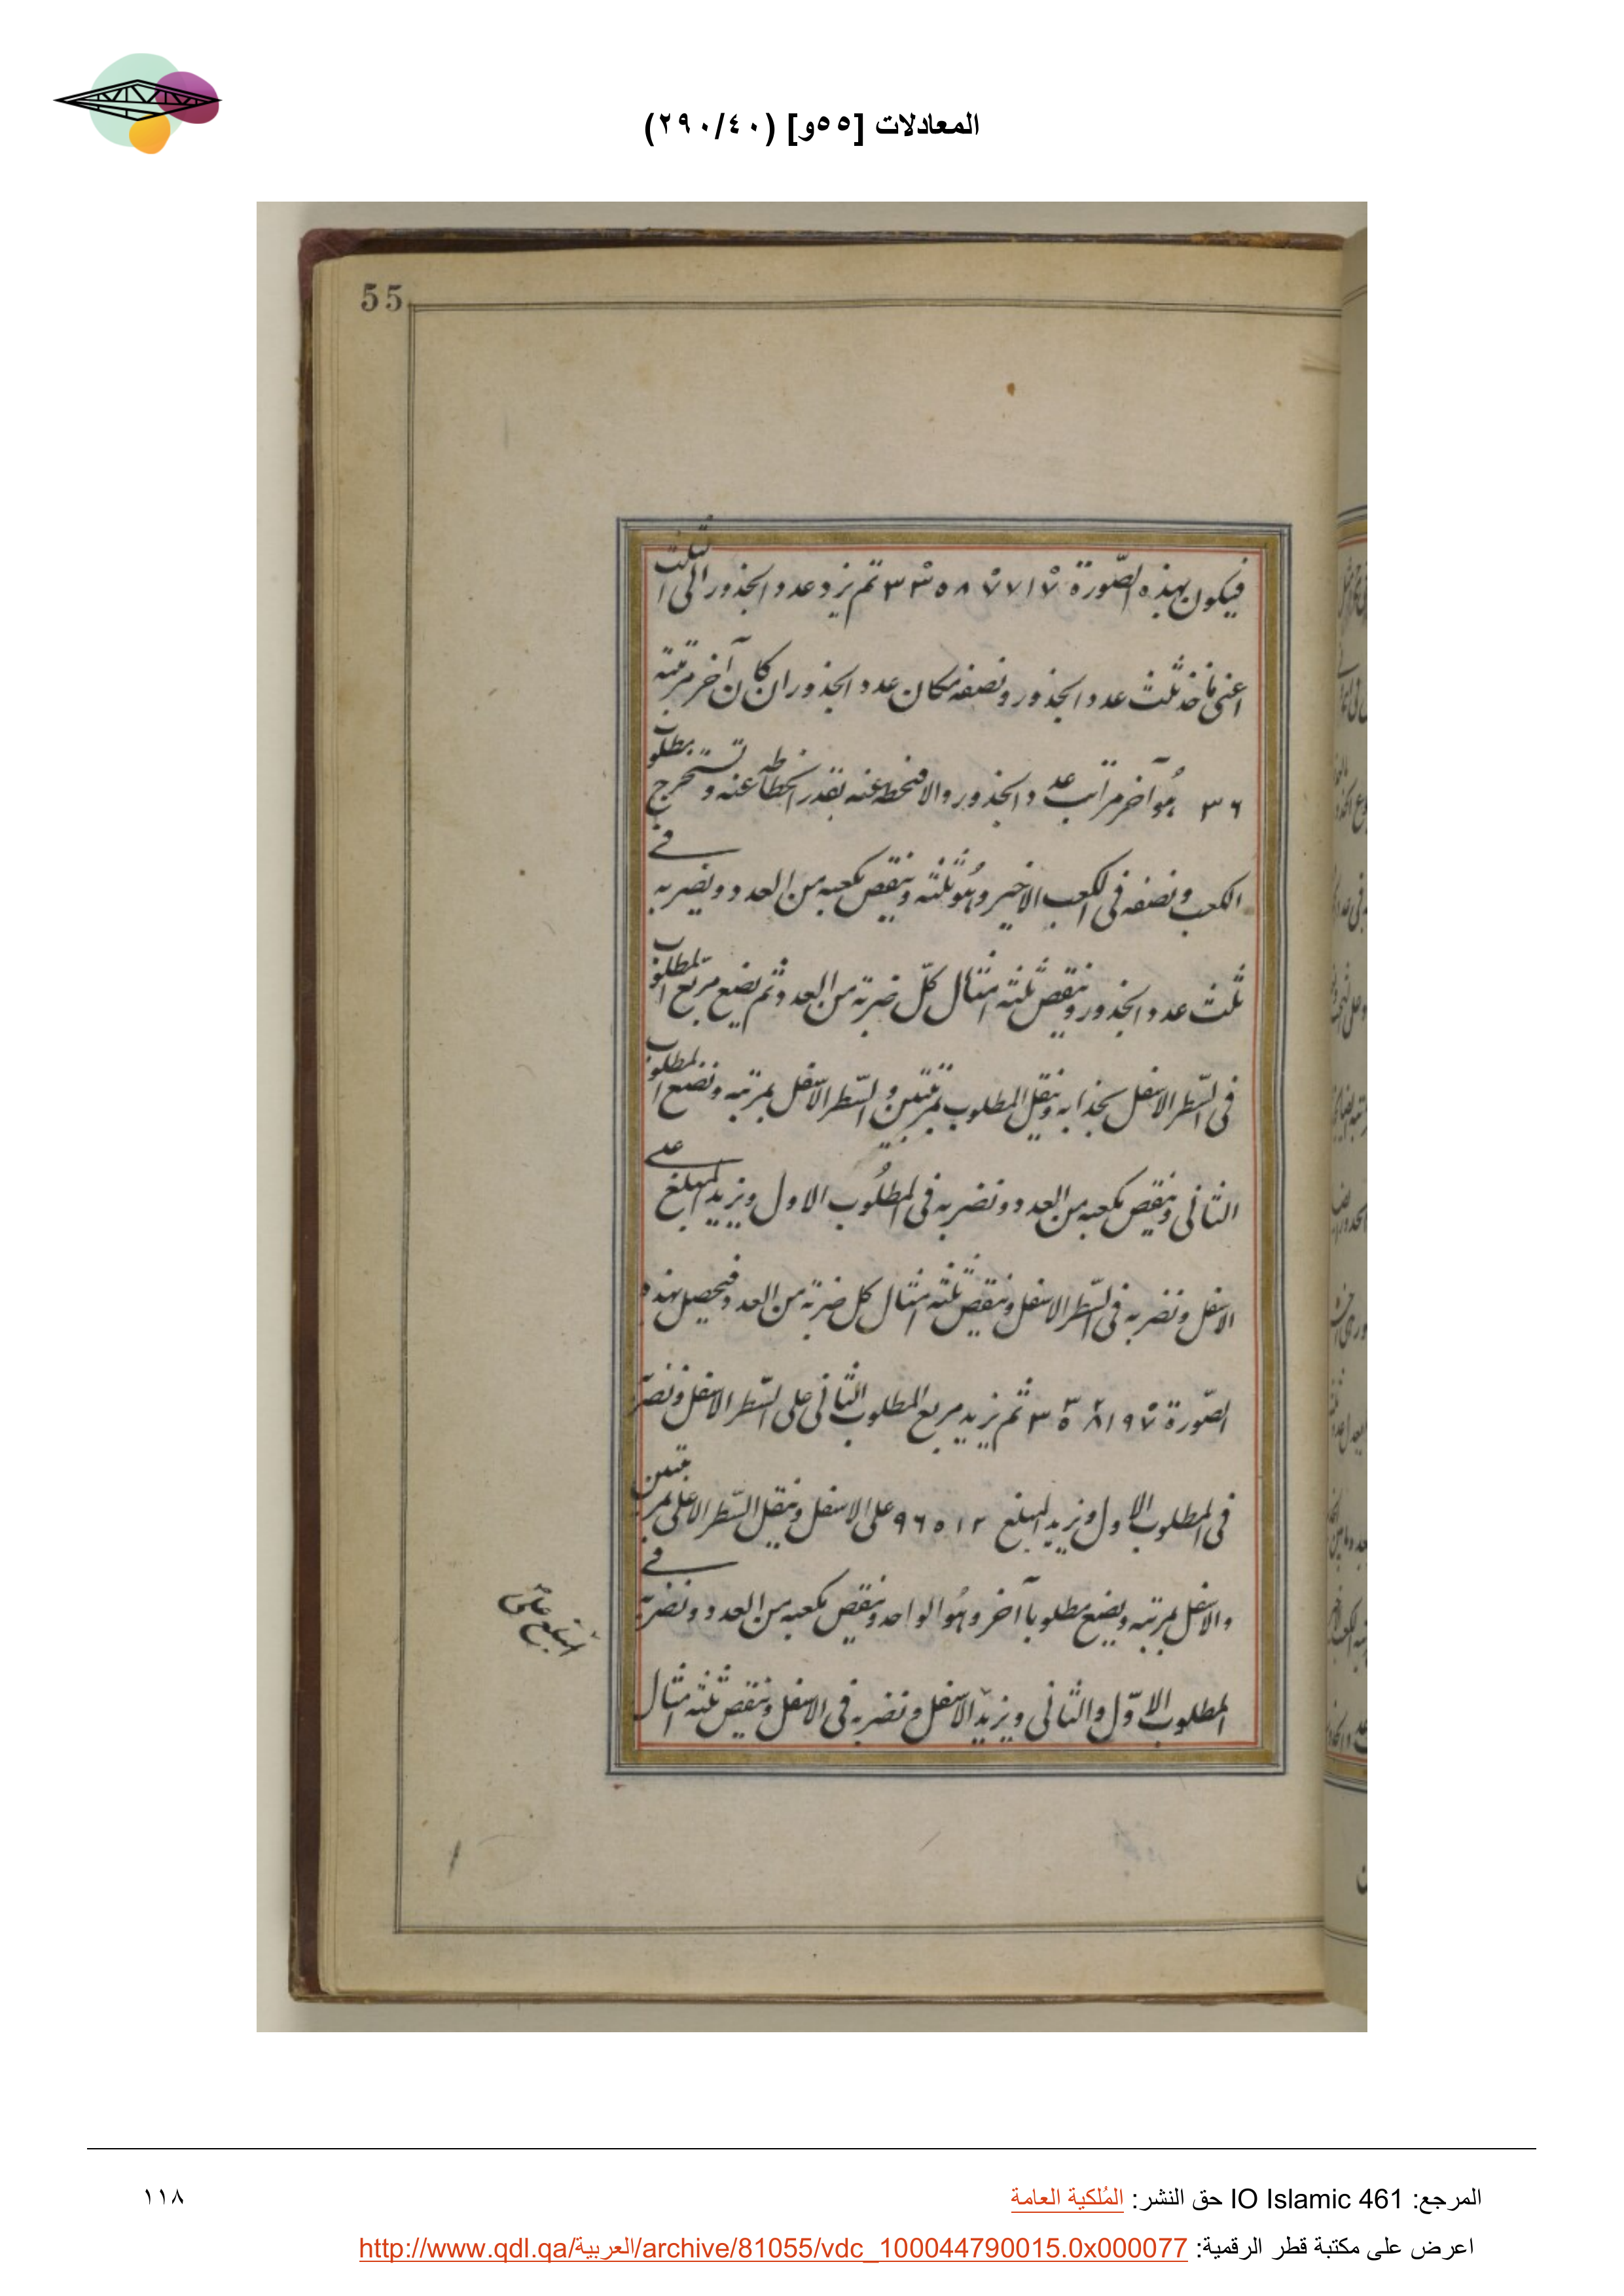 المعادلات [٥٥و] (٢٩٠/٤٠)
55
فيكون بهذه الصّورة ٣٣٥٨٧٧١٧ ثم نزد عدد الجذور الى الثلث
اعنى ناخذ ثلث عدد الجذور ونصفه مكان عدد الجذور ان كان آخر مرتبته
٣٦ هو آخر مراتب عدد الجذور والا فنحطه عنه بقدر انحطاطه عنه ونستخرج مطلوب
الكعب ونضفه فى الكعب الاخير وهو ثلثه وننقص مكعبه من العدد ونضربه فى
ثلث عدد الجذور وننقص ثلثة امثال كلّ ضربة من العدد ثم نضع مربع المطلوب
فى السّطر الاسفل بحذائه وننقل المطلوب بمرتبتين والسّطر الاسفل بمرتبه ونضع المطلوب
الثانى وننقص مكعبه من العدد ونضربه فى المطلوب الاول ونزيد المبلغ على
الاسفل ونضربه فى السّطر الاسفل وننقص ثلثة امثال كل ضربة من العدد فيحصل بهذه
الصّورة ٣٥٨١٩٧ ثم نزيد مربع المطلوب الثانى على السّطر الاسفل ونضربه
فى المطلوب الاول ونزيد المبلغ ٩٦٥١٢ على الاسفل وننقل السّطر الاعلى بمرتبتين
والاسفل بمرتبه ونضع مطلوبا آخر وهو الواحد وننقص مكعبه من العدد ونضربه فى
المطلوب الاوّل والثانى ونزيد الاسفل ونضربه فى الاسفل وننقص ثلثة امثال
المرجع: IO Islamic 461 حق النشر: المُلكية العامة
١١٨
اعرض على مكتبة قطر الرقمية: http://www.qdl.qa/العربية/archive/81055/vdc_100044790015.0x000077